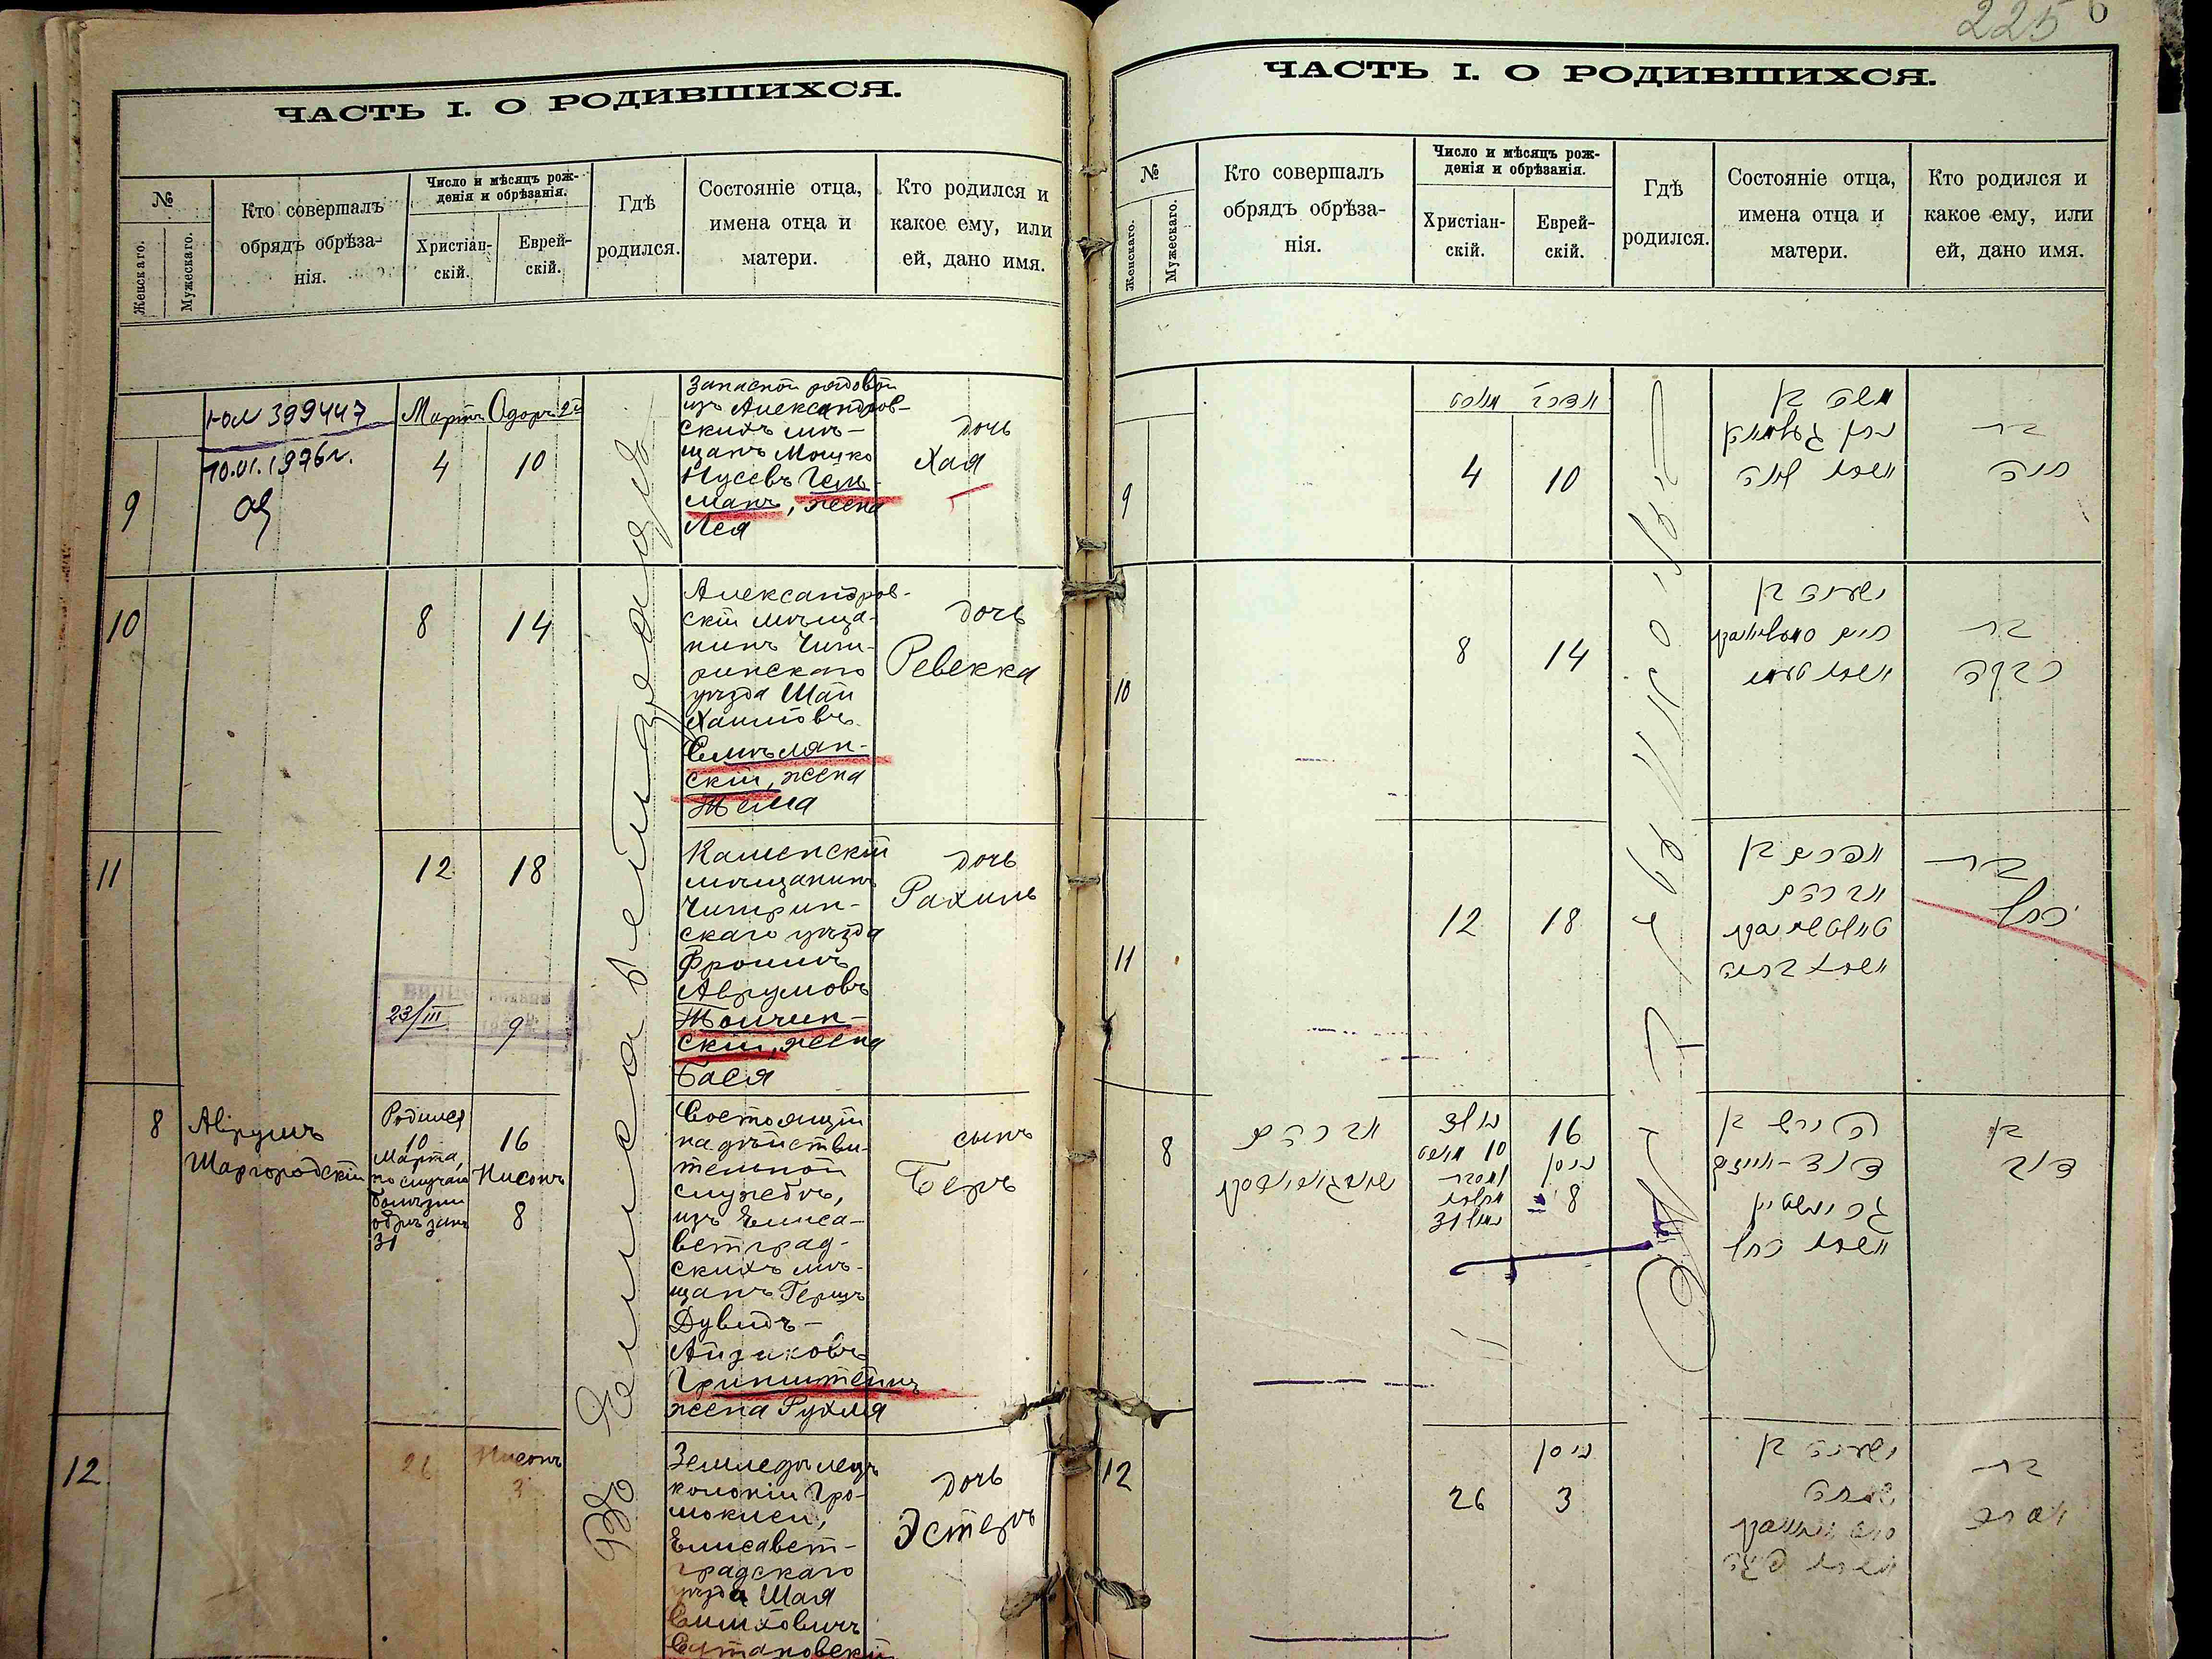 ЧАСТЬ I. О РОДИВШИХСЯ.
№
Женскаго.
Мужескаго.
Кто совершалъ
обрядъ обрѣза-
нія.
Число и мѣсяцъ рож-
денія и обрѣзанія.
Христіан-
скій.
Еврей-
скій.
Гдѣ
родился.
Состояніе отца,
имена отца и
матери.
Кто родился и
какое ему, или
ей, дано имя.
399447
10.01.1976г.
Мартъ Одоръ 2й
9
4
10
Запасной рядовой
изъ Александров-
скихъ мѣ-
щанъ Мошко
Нусевъ Гель-
манъ, жена
Лея
дочь
Хая
10
8
14
Александров-
скій мѣща-
нинъ Чиги-
ринскаго
уѣзда Шая
Хаимовъ
Смѣлян-
скій, жена
дочь
Ревекка
11
12
18
Каменскій
мѣщанинъ
Чигирин-
скаго уѣзда
Фроимъ
Аврумовъ
скій, жена
Бася
дочь
Рахиль
23/III
9
8
Аврумъ
Шаргородскій
Родился
10
Марта,
по случаю
болѣзни
обрѣзанъ
31
16
Нисонъ
8
Состоящій
на дѣйстви-
тельной
службѣ,
изъ Елиса-
ветград-
скихъ мѣ-
щанъ Гершъ
Дувидъ-
Айзиковъ
Гринштейнъ
жена Рухля
сынъ
Беръ
12
26
Нисонъ
3
Земледѣлецъ
колоніи Гро-
моклеи,
Елисавет-
градскаго
уѣзда Шая
Симховичъ
дочь
Эстеръ
Въ Елисаветградѣ
225
6
ЧАСТЬ I. О РОДИВШИХСЯ.
№
Женскаго.
Мужескаго.
Кто совершалъ
обрядъ обрѣза-
нія.
Число и мѣсяцъ рож-
денія и обрѣзанія.
Христіан-
скій.
Еврей-
скій.
Гдѣ
родился.
Состояніе отца,
имена отца и
матери.
Кто родился и
какое ему, или
ей, дано имя.
9
4
10
משה בן
אשתו לאה
בת
חיה
10
8
14
ישעיה בן
בת
רבקה
11
12
18
אפרים בן
אברהם
אשתו באסיה
בת
רחל
8
אברהם
נולד
10
16
ניסן
8
הירש בן
דוד-אייזיק
גרינשטיין
אשתו רחל
בן
דוב
12
26
ניסן
3
ישעיה בן
שמחה
בת
אסתר